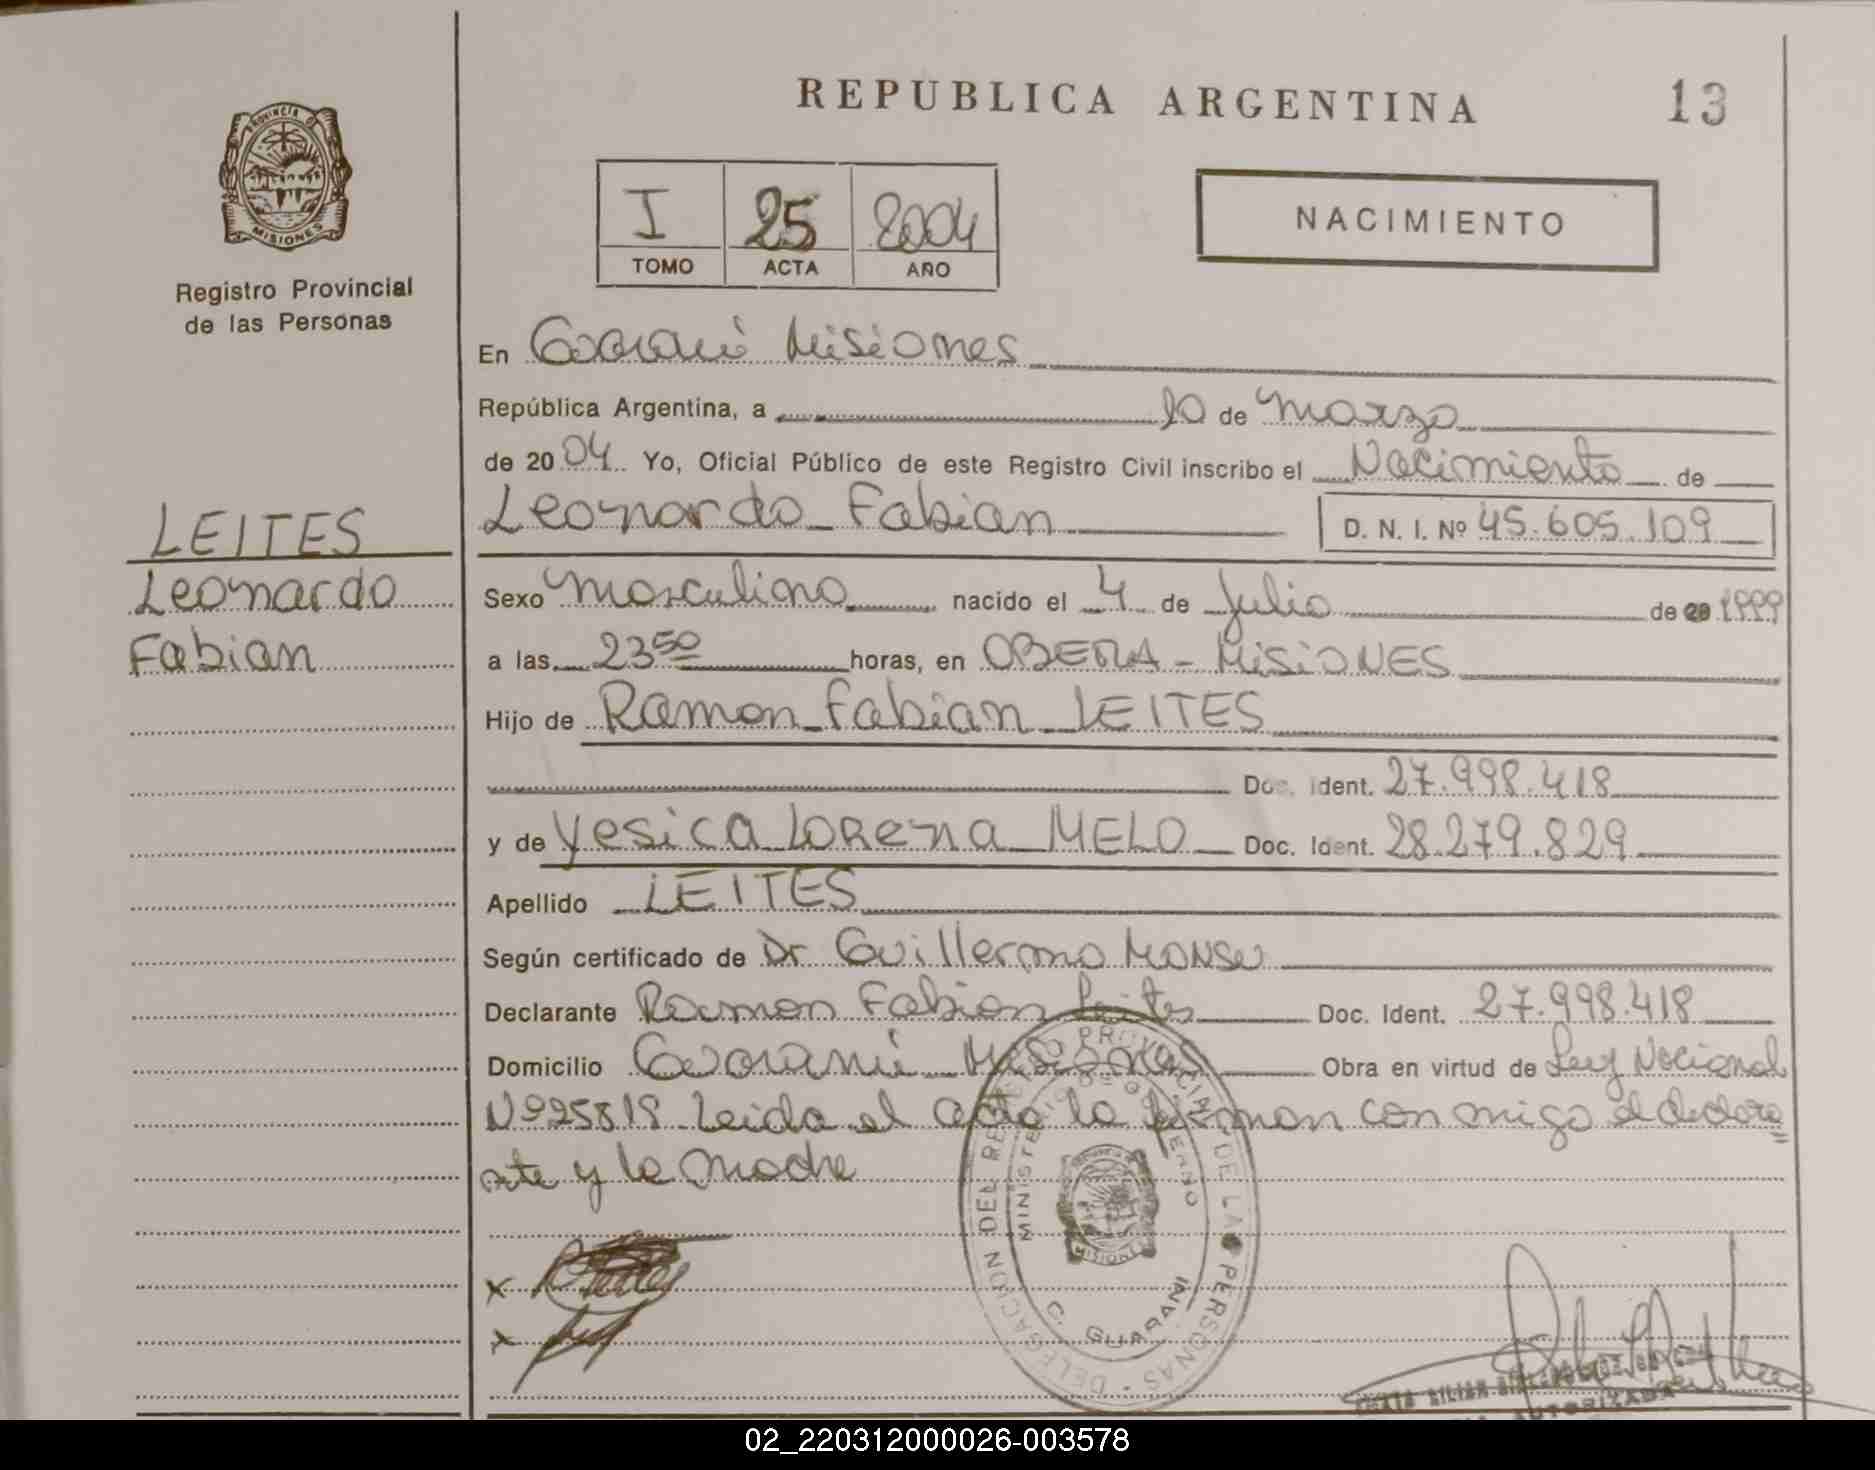 REPUBLICA ARGENTINA
13
PROVINCIA D
MISIONES
Registro Provincial
de las Personas
I 25 2004
TOMO ACTA AÑO
NACIMIENTO
En Guaraní Misiones
República Argentina, a 10 de marzo
de 2004 Yo, Oficial Público de este Registro Civil inscribo el Nacimiento de
Leonardo Fabian D. N. I. Nº 45.605.109
LEITES
Leonardo
Fabian
Sexo masculino nacido el 4 de Julio de 20 1999
a las 23 50 horas, en OBERA - MISIONES
Hijo de Ramon Fabian LEITES
Doc. Ident. 27.998.418
y de Yesica Lorena MELO Doc. Ident. 28.279.829
Apellido LEITES
Según certificado de Dr Guillermo
Declarante Ramon Fabian Leites Doc. Ident. 27.998.418
Domicilio Guaraní Misiones Obra en virtud de Ley Nacional
Nº 25819 Leida el acta la firman conmigo el declara=
nte y la madre
DELEGACION DEL REGISTRO PROVINCIAL DE LAS PERSONAS
MINISTERIO DE GOBIERNO
MISIONES
C. GUARANI
AUTORIZADA
02_220312000026-003578